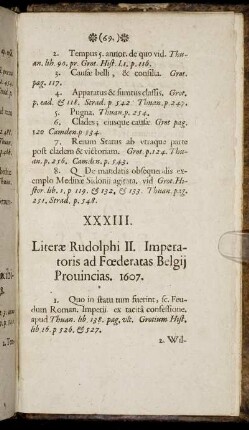 ❋(69.)❋
2. Tempus 5. annor. de quo vid. Thu-
an. lib. 90. pr. Grot. Hist. L1. p. 116.
3. Causæ belli, & consilia. Grot.
pag. 117.
4. Apparatus & sumtus classis. Grot.
p. ead. & 118. Strad. p. 542. Thuan. p. 247.
5. Pugna. Thuan. p. 254.
6. Clades; eiusque causæ Grot pag.
120 Camden. p 534.
7. Rerum Status ab vtraque parte
post cladem & victoriam. Grot. p. 124. Thu-
an. p. 256. Camden. p. 543.
8. Q De mandatis obsequendis ex-
emplo Medinæ Sidonii agitata. vid Grot. Hi-
stor. lib. 1, p. 119. & 132, & 133. Thuan. pag.
251. Strad. p. 548.
XXXIII.
Literæ Rudolphi II. Impera-
toris ad Fœderatas Belgij
Prouincias. 1607.
1. Quo in statu tum fuerint, sc. Feu-
dum Roman. Imperii ex tacita confessione.
apud Thuan. lib. 138. pag. vlt. Grotium Hist.
lib. 16. p 526. & 527.
2. Wil-